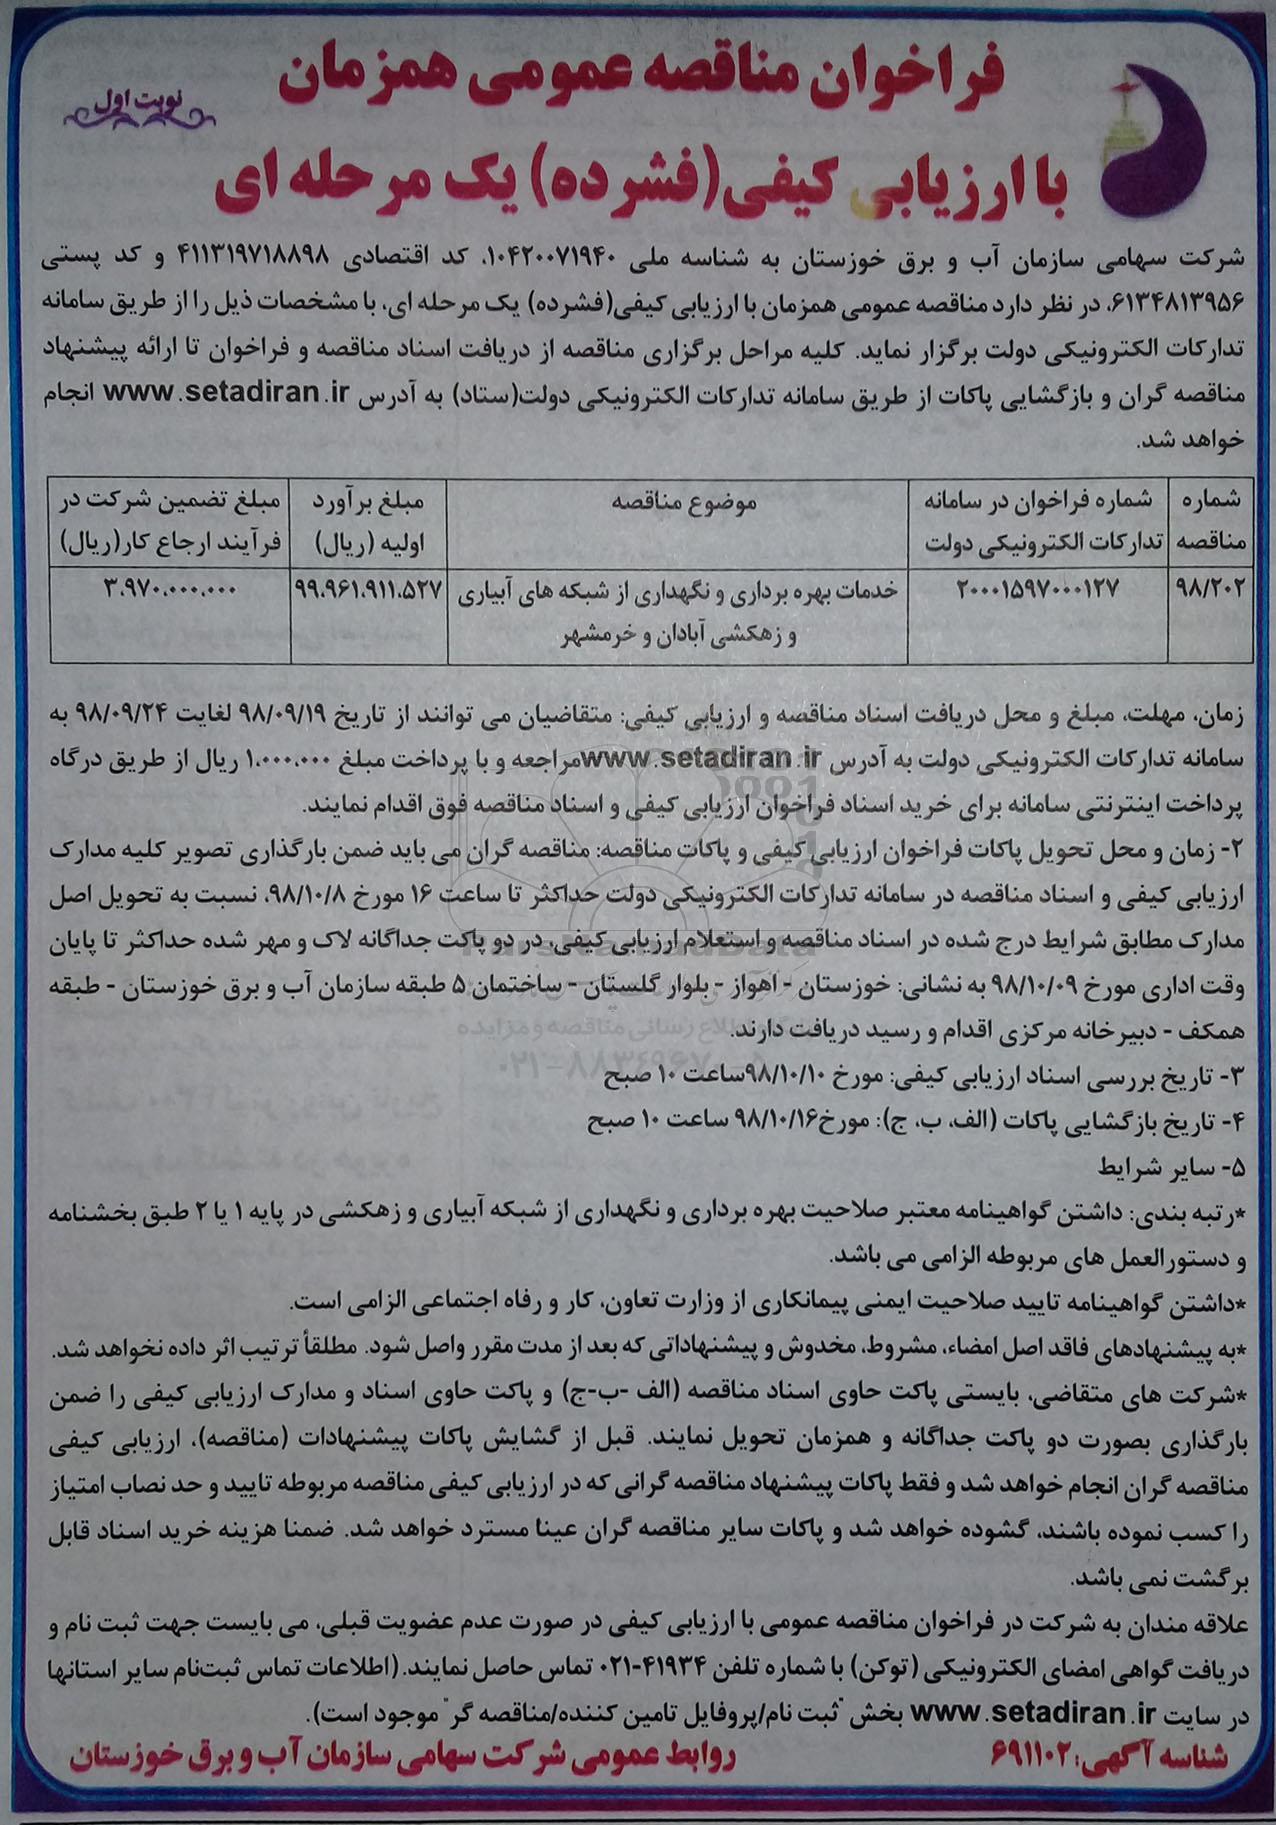 فراخوان مناقصه عمومی همزمان
نوبت اول
با ارزیابی کیفی(فشرده) یک مرحله ای
شرکت سهامی سازمان آب و برق خوزستان به شناسه ملی ۱۰۴۲۰۰۷۱۹۴۰، کد اقتصادی ۴۱۱۳۱۹۷۱۸۸۹۸ و کد پستی
۶۱۳۴۸۱۳۹۵۶، در نظر دارد مناقصه عمومی همزمان با ارزیابی کیفی(فشرده) یک مرحله ای، با مشخصات ذیل را از طریق سامانه
تدارکات الکترونیکی دولت برگزار نماید. کلیه مراحل برگزاری مناقصه از دریافت اسناد مناقصه و فراخوان تا ارائه پیشنهاد
مناقصه گران و بازگشایی پاکات از طریق سامانه تدارکات الکترونیکی دولت(ستاد) به آدرس www.setadiran.ir انجام
خواهد شد.
شماره مناقصه
شماره فراخوان در سامانه تدارکات الکترونیکی دولت
موضوع مناقصه
مبلغ برآورد اولیه (ریال)
مبلغ تضمین شرکت در فرآیند ارجاع کار(ریال)
۹۸/۲۰۲
۲۰۰۰۱۵۹۷۰۰۰۱۲۷
خدمات بهره برداری و نگهداری از شبکه های آبیاری
و زهکشی آبادان و خرمشهر
۹۹،۹۶۱،۹۱۱،۵۲۷
۳،۹۷۰،۰۰۰،۰۰۰
زمان، مهلت، مبلغ و محل دریافت اسناد مناقصه و ارزیابی کیفی: متقاضیان می توانند از تاریخ ۹۸/۰۹/۱۹ لغایت ۹۸/۰۹/۲۴ به
سامانه تدارکات الکترونیکی دولت به آدرس www.setadiran.irمراجعه و با پرداخت مبلغ ۱،۰۰۰،۰۰۰ ریال از طریق درگاه
پرداخت اینترنتی سامانه برای خرید اسناد فراخوان ارزیابی کیفی و اسناد مناقصه فوق اقدام نمایند.
۲- زمان و محل تحویل پاکات فراخوان ارزیابی کیفی و پاکات مناقصه: مناقصه گران می باید ضمن بارگذاری تصویر کلیه مدارک
ارزیابی کیفی و اسناد مناقصه در سامانه تدارکات الکترونیکی دولت حداکثر تا ساعت ۱۶ مورخ ۹۸/۱۰/۸، نسبت به تحویل اصل
مدارک مطابق شرایط درج شده در اسناد مناقصه و استعلام ارزیابی کیفی، در دو پاکت جداگانه لاک و مهر شده حداکثر تا پایان
وقت اداری مورخ ۹۸/۱۰/۰۹ به نشانی: خوزستان - اهواز - بلوار گلستان - ساختمان ۵ طبقه سازمان آب و برق خوزستان - طبقه
همکف - دبیرخانه مرکزی اقدام و رسید دریافت دارند.
۳- تاریخ بررسی اسناد ارزیابی کیفی: مورخ ۹۸/۱۰/۱۰ساعت ۱۰ صبح
۴- تاریخ بازگشایی پاکات (الف، ب، ج): مورخ۹۸/۱۰/۱۶ ساعت ۱۰ صبح
۵- سایر شرایط
*رتبه بندی: داشتن گواهینامه معتبر صلاحیت بهره برداری و نگهداری از شبکه آبیاری و زهکشی در پایه ۱ یا ۲ طبق بخشنامه
و دستورالعمل های مربوطه الزامی می باشد.
*داشتن گواهینامه تایید صلاحیت ایمنی پیمانکاری از وزارت تعاون، کار و رفاه اجتماعی الزامی است.
*به پیشنهادهای فاقد اصل امضاء، مشروط، مخدوش و پیشنهاداتی که بعد از مدت مقرر واصل شود. مطلقاً ترتیب اثر داده نخواهد شد.
*شرکت های متقاضی، بایستی پاکت حاوی اسناد مناقصه (الف -ب-ج) و پاکت حاوی اسناد و مدارک ارزیابی کیفی را ضمن
بارگذاری بصورت دو پاکت جداگانه و همزمان تحویل نمایند. قبل از گشایش پاکات پیشنهادات (مناقصه)، ارزیابی کیفی
مناقصه گران انجام خواهد شد و فقط پاکات پیشنهاد مناقصه گرانی که در ارزیابی کیفی مناقصه مربوطه تایید و حد نصاب امتیاز
را کسب نموده باشند، گشوده خواهد شد و پاکات سایر مناقصه گران عینا مسترد خواهد شد. ضمنا هزینه خرید اسناد قابل
برگشت نمی باشد.
علاقه مندان به شرکت در فراخوان مناقصه عمومی با ارزیابی کیفی در صورت عدم عضویت قبلی، می بایست جهت ثبت نام و
دریافت گواهی امضای الکترونیکی (توکن) با شماره تلفن ۴۱۹۳۴-۰۲۱ تماس حاصل نمایند. (اطلاعات تماس ثبت‌نام سایر استانها
در سایت www.setadiran.ir بخش "ثبت نام/پروفایل تامین کننده/مناقصه گر" موجود است).
شناسه آگهی: ۶۹۱۱۰۲
روابط عمومی شرکت سهامی سازمان آب و برق خوزستان